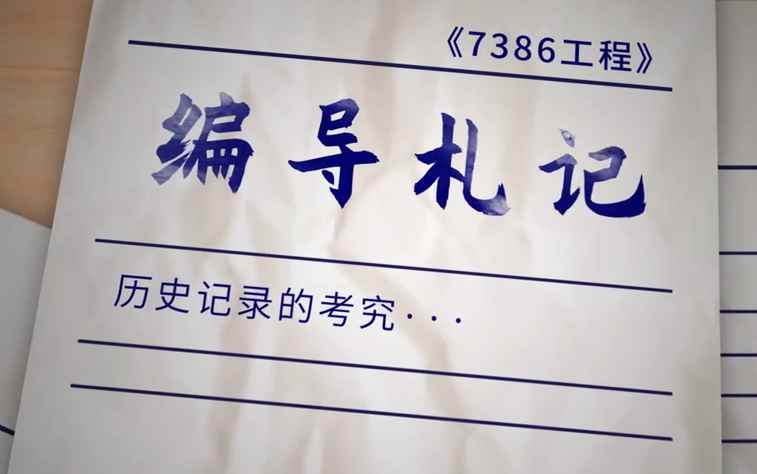 《7386工程》
编导札记
历史记录的考究···